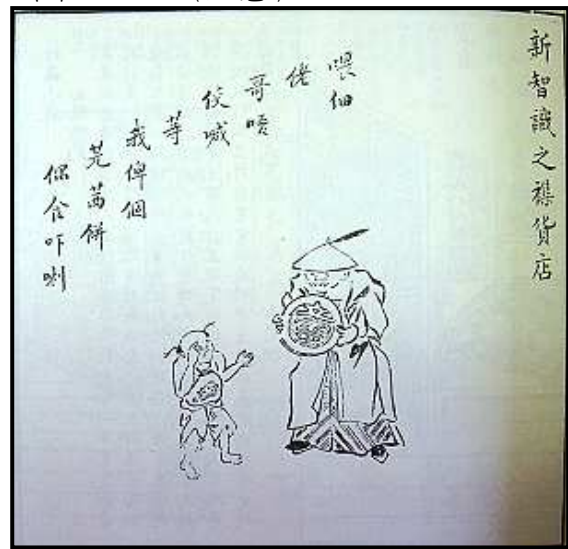 新智識之襍貨店
喂細
佬
哥唔
使喊
等
我俾個
芫茜餅
你食咋喇